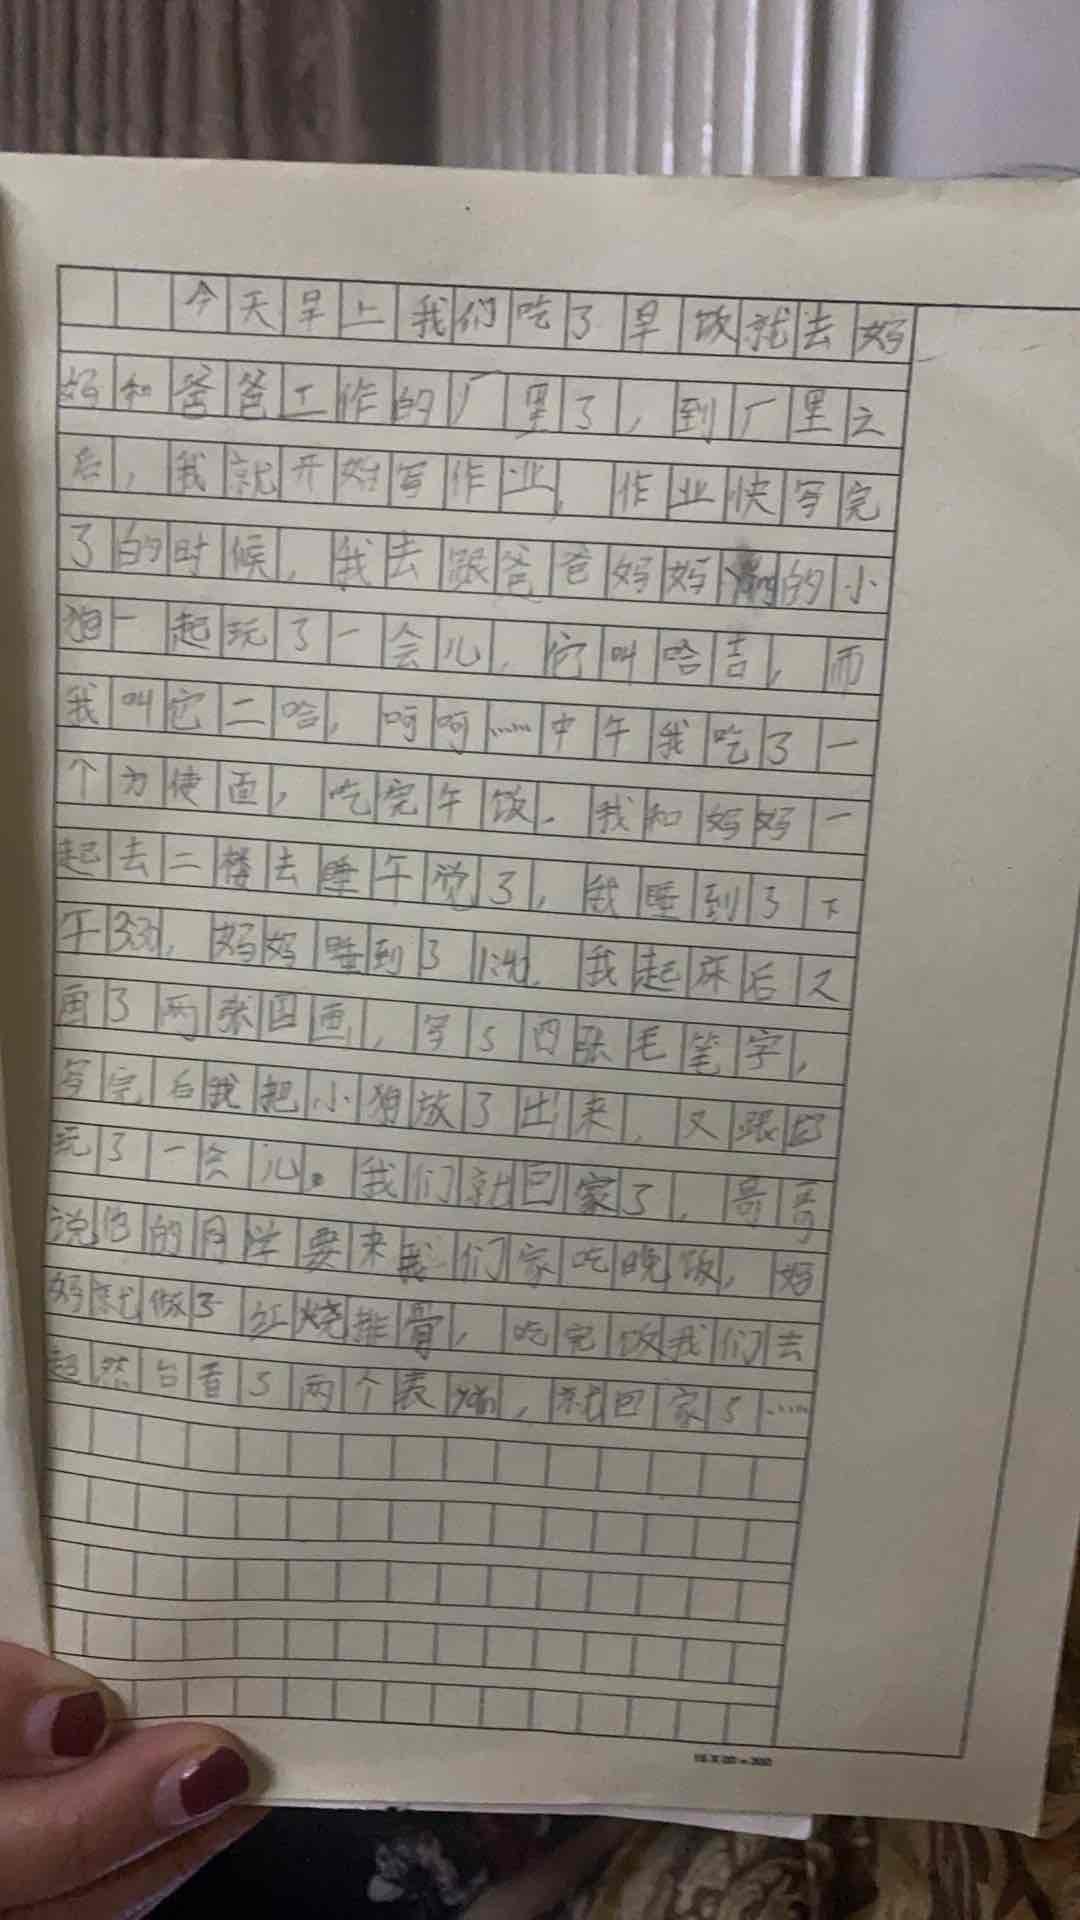 今天早上我们吃了早饭就去妈
妈和爸爸工作的厂里了,到厂里之
后,我就开始写作业,作业快写完
了的时候,我去跟爸爸妈妈的小
狗一起玩了一会儿,它叫哈吉,而
我叫它二哈,呵呵……中午我吃了一
个方使面,吃完午饭,我和妈妈一
起去二楼去睡午觉了,我睡到了下
午3:30,妈妈睡到了1:40,我起床后又
画了两张国画,写了四张毛笔字,
写完后我把小狗放了出来,又跟它
玩了一会儿。我们就回家了,哥哥
说他的同学要来我们家吃晚饭,妈
妈就做了红烧排骨,吃完饭我们去
超然台看了两个表,就回家了……